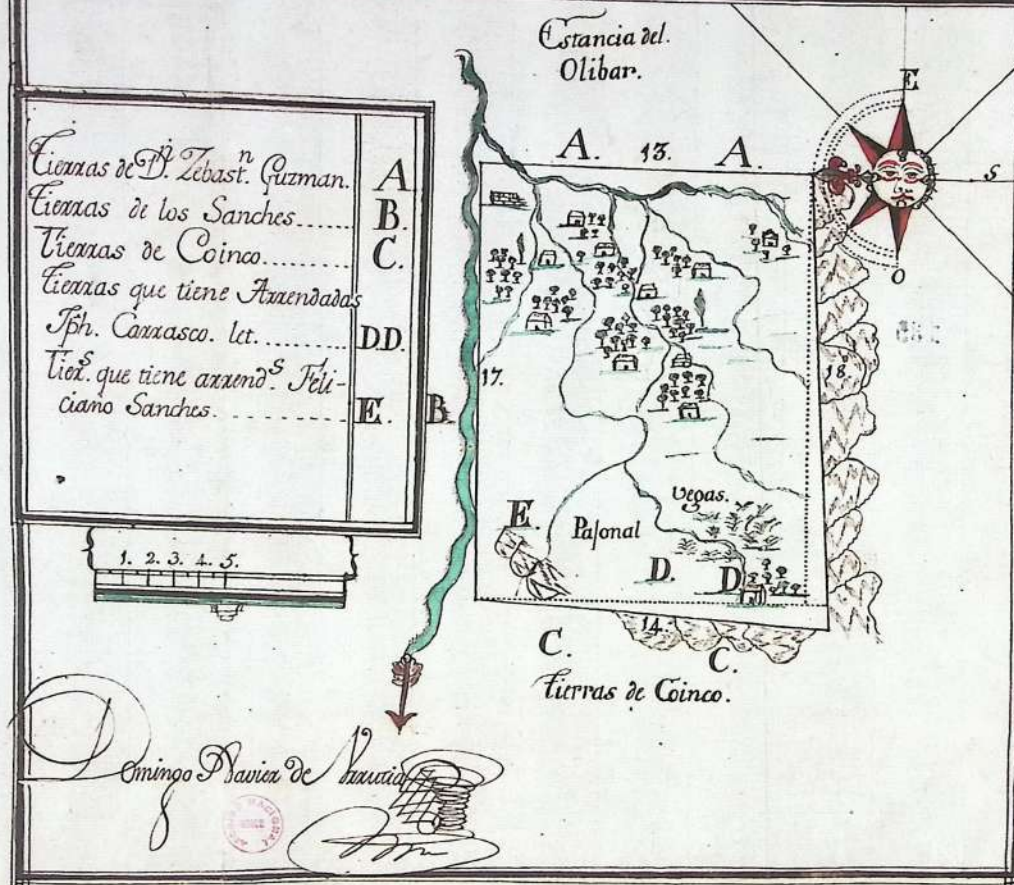 Estancia del.
Olibar.
E
S
O
A. 13. A.
Tierras de Dn. Zebastn. Guzman. A
Tierras de los Sanches...... B.
Tierras de Coinco.......... C.
Tierras que tiene Arrendadas
Jph. Carrasco. let.......... D.D.
Tiers. que tiene arrends. Feli-
ciano Sanches.............. E.
B.
17.
18.
E.
Pasonal
Vegas.
D. D
1. 2. 3. 4. 5.
14.
C. C.
Tierras de Coinco.
Domingo Xavier de Urrutia